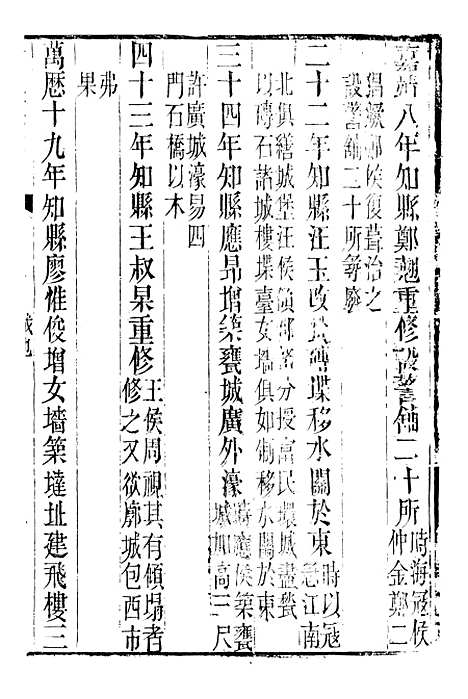 嘉靖八年知縣鄭翹重修設警鋪二十所時海寇侯仲金鄭二
猖獗鄭侯復葺治之
設警鋪二十所尋廢
二十二年知縣汪玉改瓦磚堞移水關於東時以寇急江南
北興繕城堡汪侯分授富民環城盡甃
以磚石諸城樓堞臺女墻俱如制移水關於東
三十四年知縣應昂增築甕城廣外濠時應侯築甕城加高三尺
許廣城濠易四
門石橋以木
四十三年知縣王叔杲重修王侯周視其有傾塌者修之又欲廓城包西市
弗
果
萬曆十九年知縣廖惟俊增女墻築墶址建飛樓三